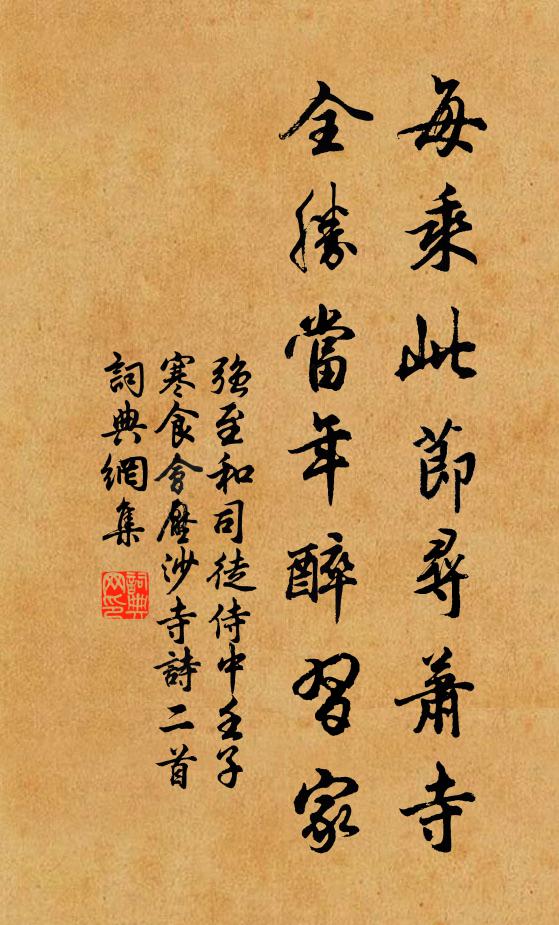 每乘此節尋蕭寺
全勝當年醉習家
強至和司徒侍中壬子
寒食會壓沙寺詩二首
詞典網集
詞典
网印